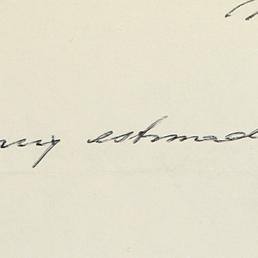 muy estimad